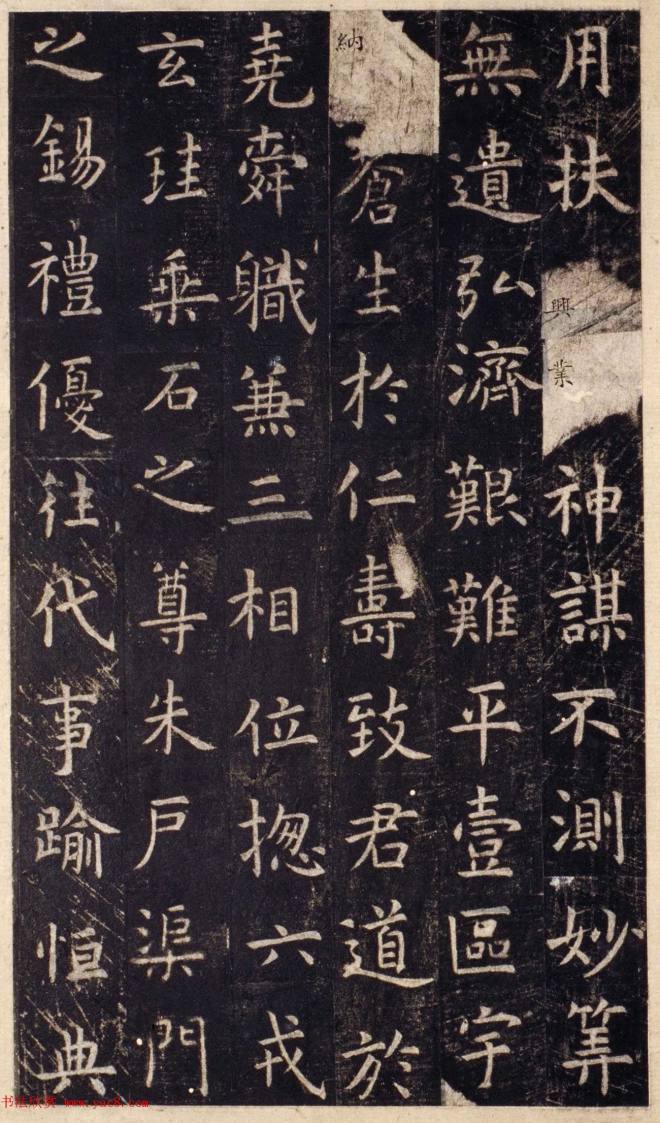 用扶興業神謀不測妙筭
無遺弘濟艱難平壹區宇
納蒼生於仁壽致君道於
堯舜職兼三相位揔六戎
玄珪乗石之尊朱戸渠門
之錫禮優往代事踰恒典
书法欣赏 www.yac8.com